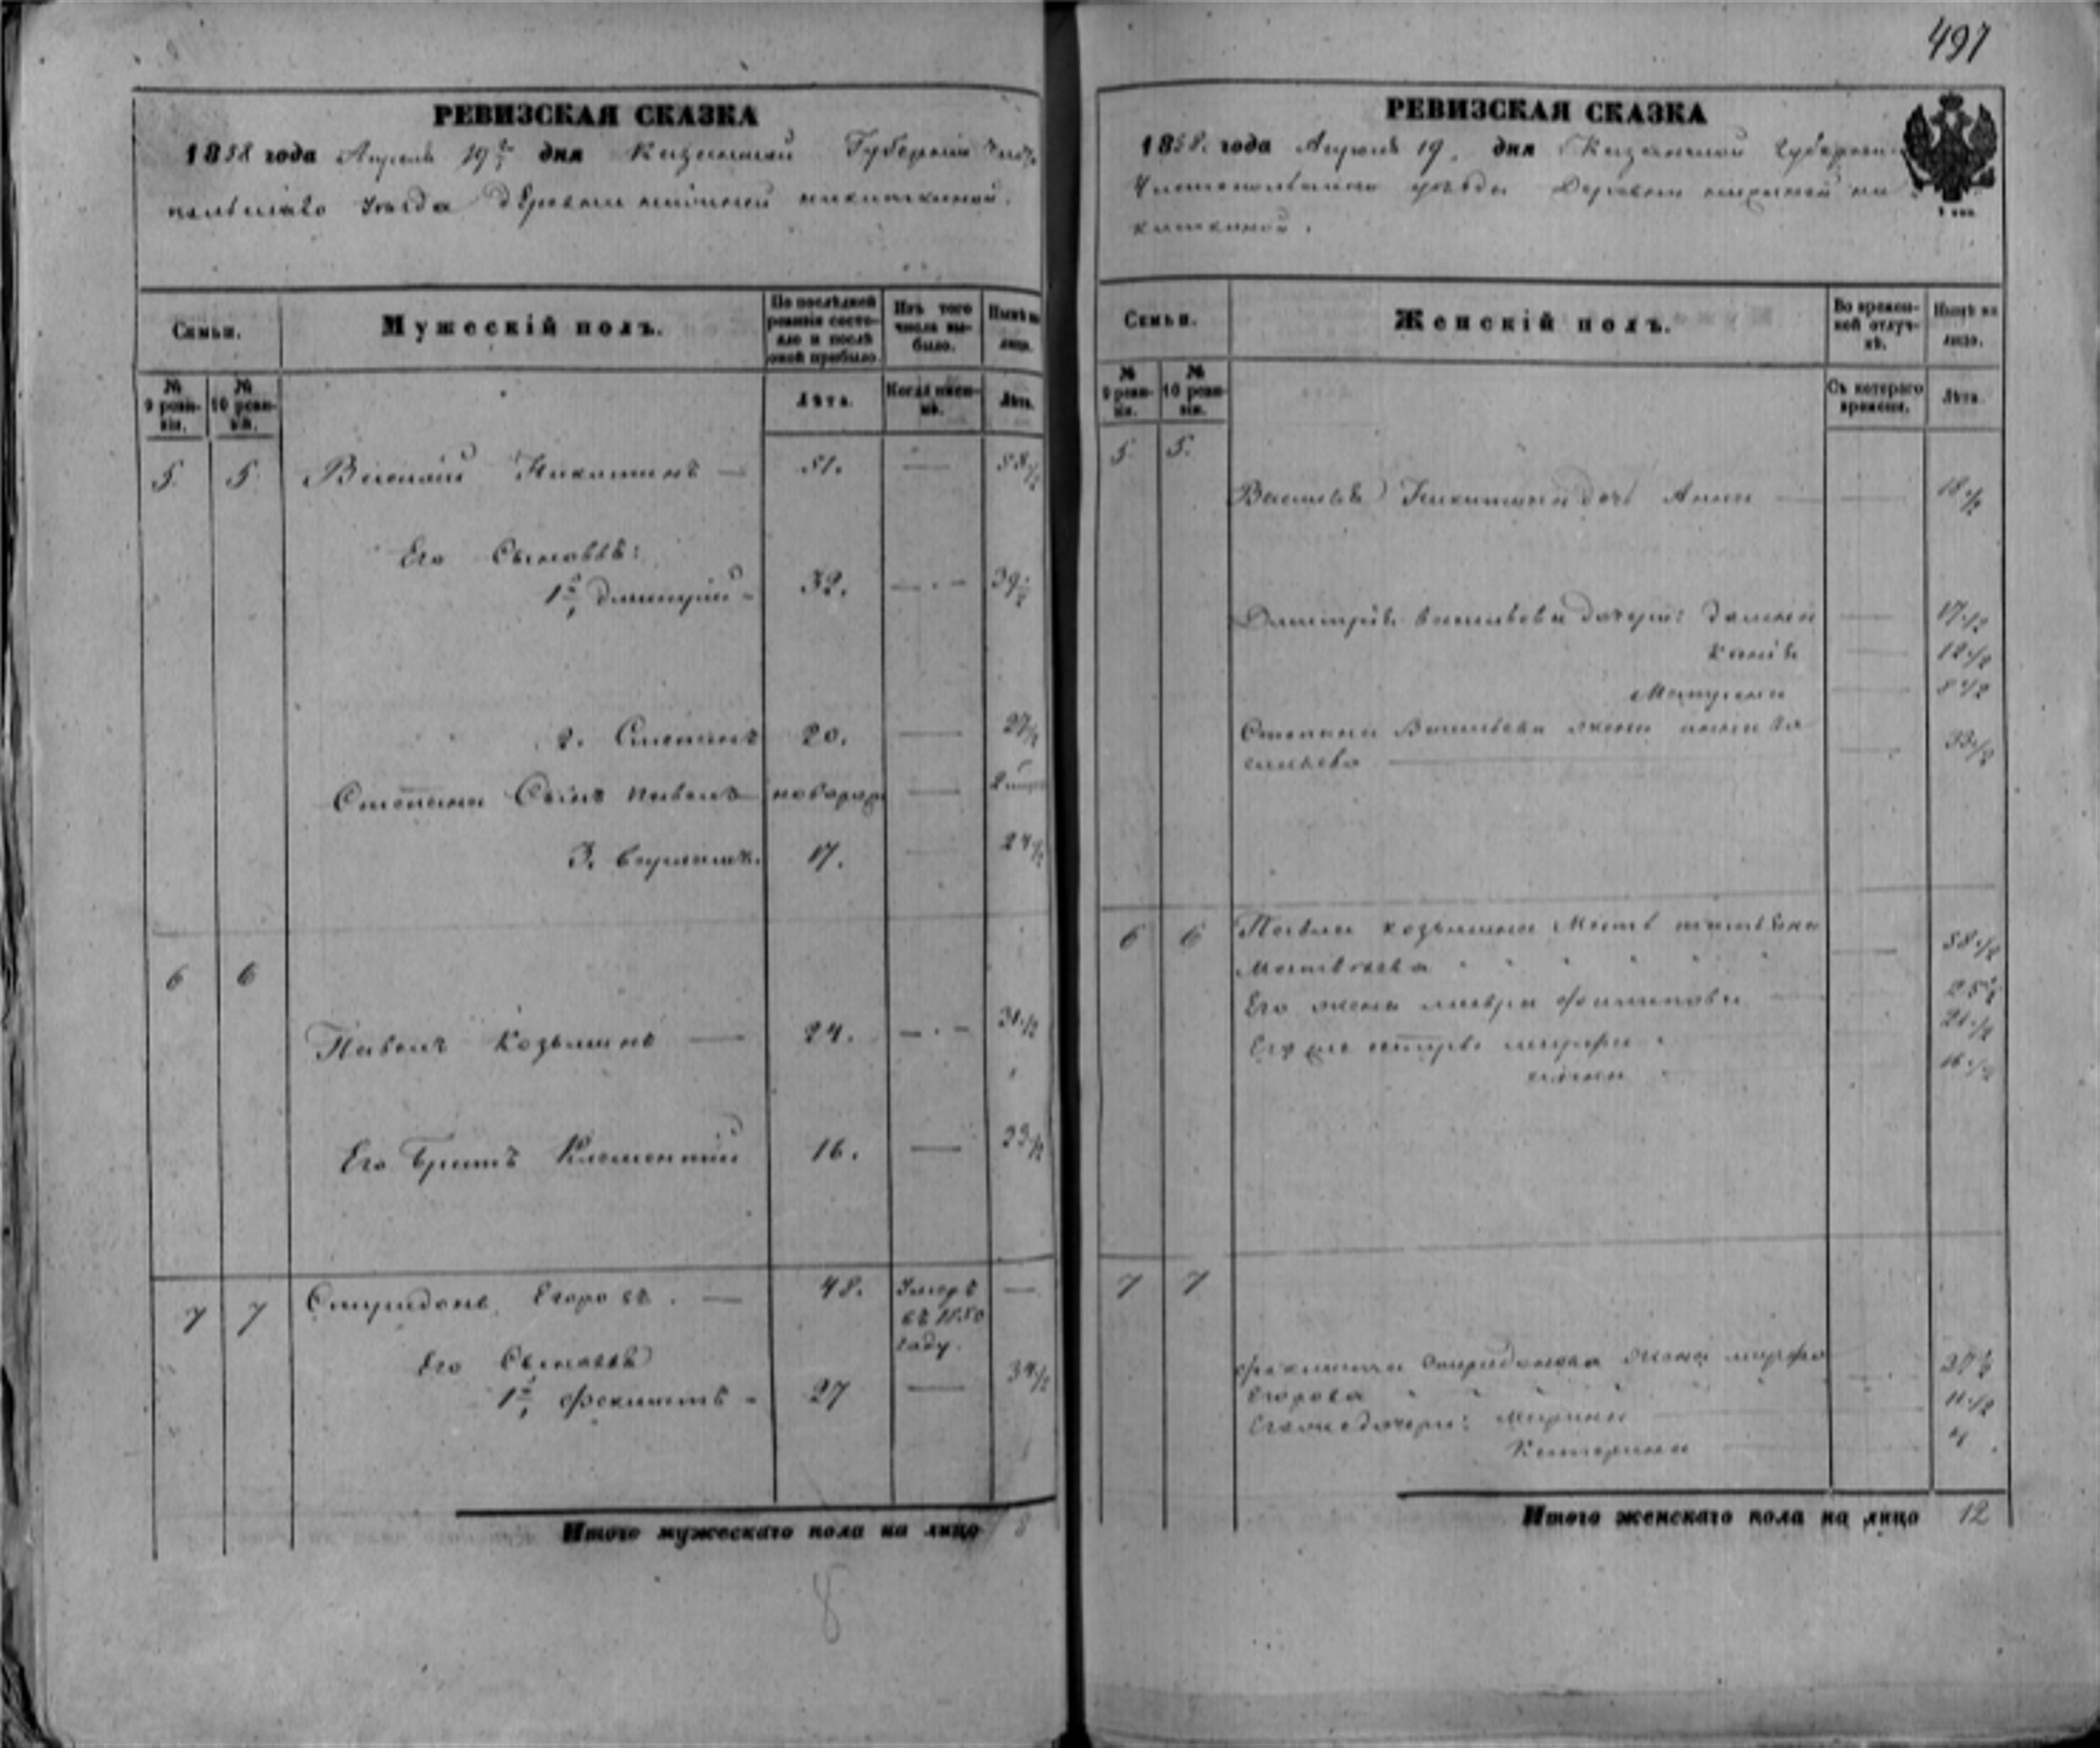 497
РЕВИЗСКАЯ СКАЗКА
1858 года Апреля 19 дня Казанской Губернiи Чисто
польскаго Уезда Деревни
Семьи.
Мужескiй полъ.
По послѣдней ревизiи состояло и послѣ оной прибыло.
Изъ того числа выбыло.
Нынѣ на лицо.
№ 9 ревизiи.
№ 10 ревизiи.
Лѣта.
Когда именно.
Лѣта.
5 5 Василiй Никитинъ — 51. — 58½
Его Сыновья:
1й Дмитрiй - 32. — 39½
2. Степанъ 20. — 27½
Степана Сынъ Павелъ —
3. 17. — 24½
6 6
Павелъ Козьминъ — 24. — 31½
Его Братъ Климентiй 16. — 23½
7 7 Спиридонъ Егоровъ. — 48. Умеръ въ 1850 году. —
Его Сыновья
1й Феклистъ - 27 — 34½
Итого мужескаго пола на лицо 8
8
РЕВИЗСКАЯ СКАЗКА
1858. года Апреля 19. дня Казанской Губернiи
Чистопольскаго уезда Деревни
Семьи.
Женскiй полъ.
Во временной отлучкѣ.
Нынѣ на лицо.
№ 9 ревизiи.
№ 10 ревизiи.
Съ котораго времени.
Лѣта.
5. 5.
Василья Никитина дочь Анна — 18½
Дмитрiя Васильева дочери: 17½
12½
Матрена — 8½
Степана Васильева жена Анна Ва
сильева — 33½
6 6 Павла Козьмина Мать Татьяна
Матвеева 58½
Его жена Мавра Филипова 25½
Его же сестры Марфа 21½
16½
7 7
Феклиста Спиридонова жена Марфа
Егорова 37½
Его же дочери: Марина 11½
Катерина 4
Итого женскаго пола на лицо 12